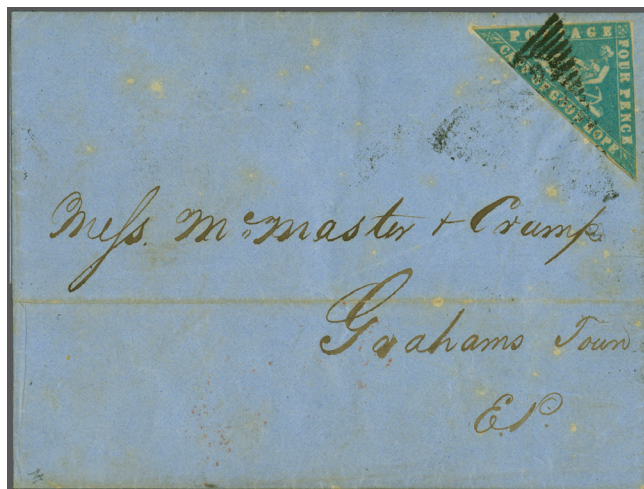 POSTAGE
FOUR PENCE
CAPE OF GOOD HOPE
Mess. Mc.Master & Crump
Grahams Town
E.P.